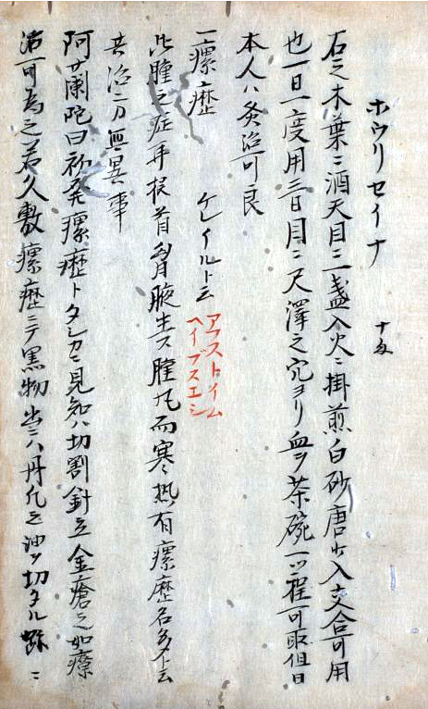 ホウリセイナ 十匁
右之木ノ葉ニ酒天目ニ二盞入火ニ掛煎白砂唐少入交合可用
也一日一度用三日目ニ尺澤之穴ヨリ血ヲ茶碗一ツ程可取但日
本人ハ灸治可良
一瘰癧 ケレイルト云 アフストイム
ヘイフスエシ
此腫之症耳根首肩腋生ス腫也而寒熱有瘰癧名多ト云
其治方無異事
阿蘭陀曰初発瘰癧トタシカニ見知ハ切割針立金瘡之如療
治可為之若久敷瘰癧ニテ黒物出ハ丹化之油ヲ切タル跡ニ